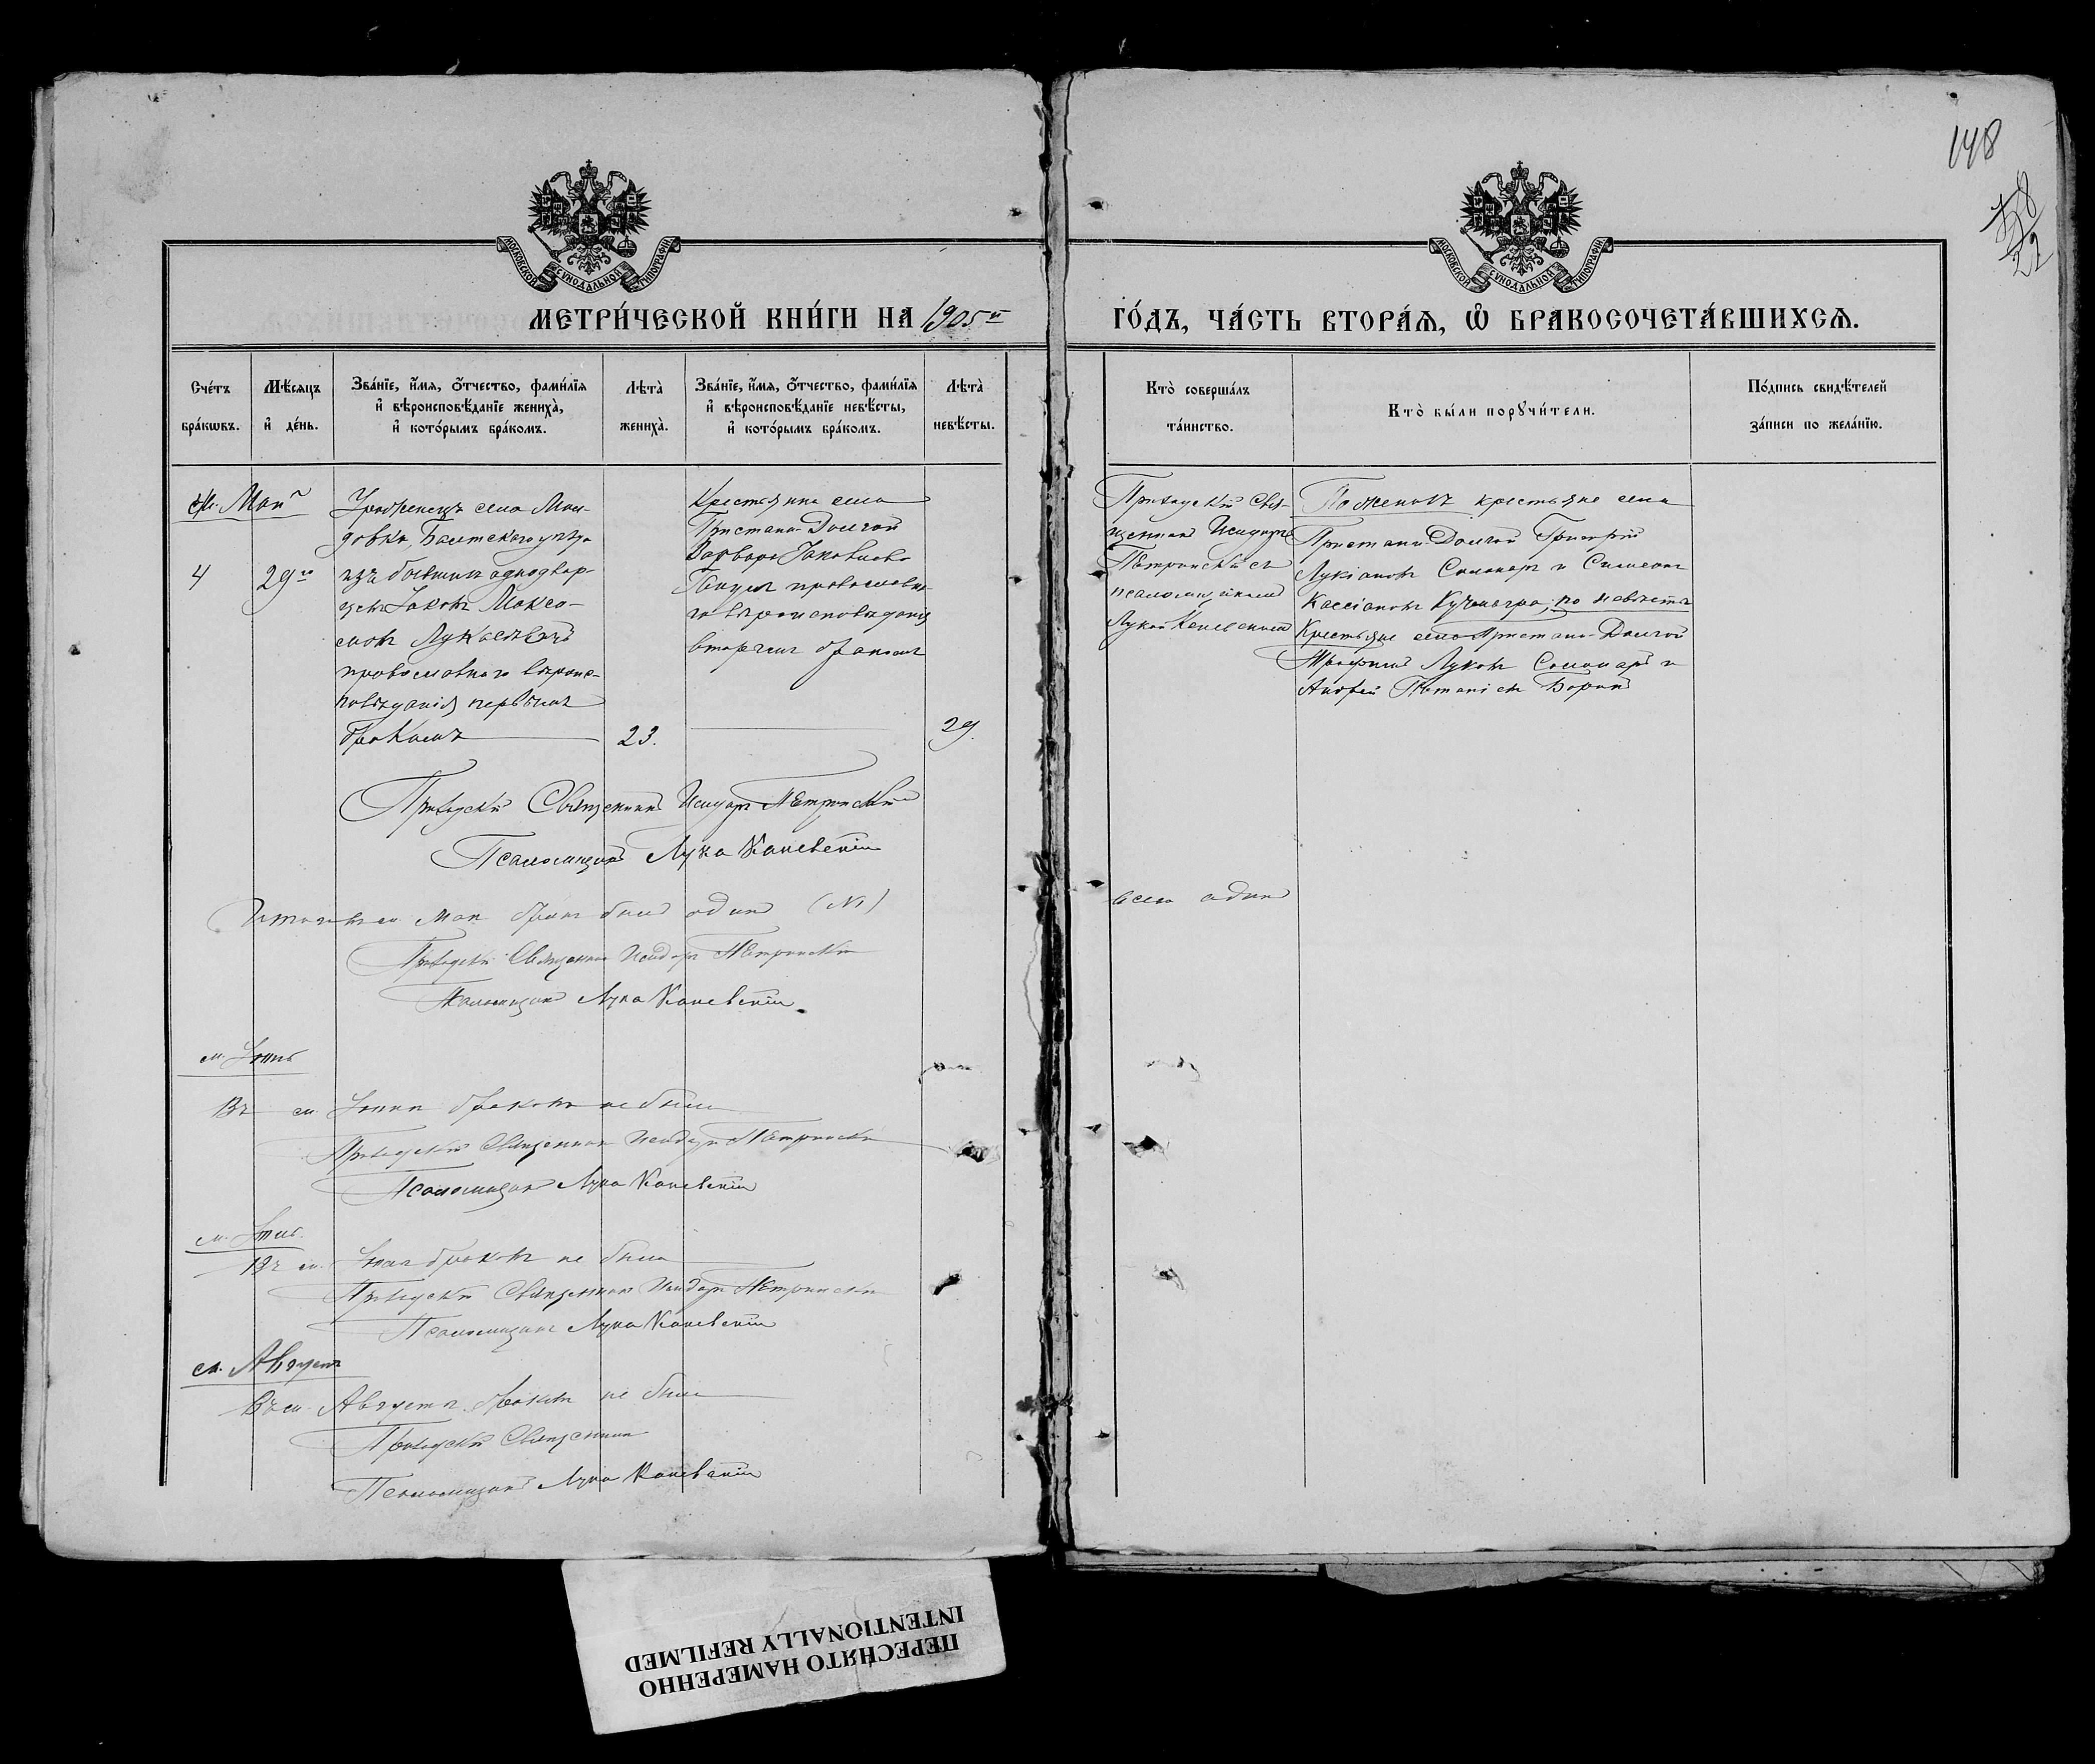 148
22
МОСКОВСКОЙ СѴНОДАЛЬНОЙ ТИПОГРАФІИ
МОСКОВСКОЙ СѴНОДАЛЬНОЙ ТИПОГРАФІИ
МЕТРИ́ЧЕСКОЙ КНИ́ГИ НА 1905й
ГО́ДЪ, ЧА́СТЬ ВТОРА́Ѧ, Ѽ БРАКОСОЧЕТА́ВШИХСѦ.
Сче́тъ бра́кѡвъ.
Мѣ́сяцъ и҆ де́нь.
Зва́нїе, и҆́мѧ, ѻ҆́тчество, фами́лїѧ
и҆ вѣроисповѣ́данїе жениха̀,
и҆ кото́рымъ бра́комъ.
Лѣ́та̀ жениха̀.
Зва́нїе, и҆́мѧ, ѻ҆́тчество, фами́лїѧ
и҆ вѣроисповѣ́данїе невѣ́сты,
и҆ кото́рымъ бра́комъ.
Лѣ́та̀ невѣ́сты.
Кто̀ соверша́лъ
та́инство.
Кто̀ бы́ли порꙋчи́тели.
По́дпись свидѣ́телей
за́писи по жела́нїю.
м. Май
4
29го
Уроженецъ села Ман-
довки, Балтскаго уѣзда
изъ бывшихъ однодвор-
цевъ Іаковъ Макси-
мовъ
православнаго вѣроис-
повѣданія первымъ
бракомъ
23.
Крестьянка села
Пристани-Долгой
Варвара Іаковлева
православна-
го вѣроисповѣданія
вторымъ бракомъ
29.
Приходскій Свя-
щенник Исидоръ
Петринскій съ
псаломщикомъ
Лукою Каневскимъ
По женихѣ крестьяне села
Пристани-Долгой Григорій
Лукіановъ Соломаръ и Симеонъ
Кассіановъ Кучмагра, по невѣстѣ
Крестьяне села Пристани-Долгой
Трофимъ Луковъ Соломаръ и
Андрей
Приходскій Священникъ Исидоръ Петринскій
Псаломщикъ Лука Каневскій
Итого въ м. Маѣ бракъ былъ одинъ (№1)
всего одинъ
Приходскій Священникъ Исидоръ Петринскій
Псаломщикъ Лука Каневскій
м. Іюнь
Въ м. Іюнѣ браковъ не было
Приходскій Священникъ Исидоръ Петринскій
Псаломщикъ Лука Каневскій
м. Іюль
Въ м. Іюлѣ браковъ не было
Приходскій Священникъ Исидоръ Петринскій
Псаломщикъ Лука Каневскій
м. Августъ
Въ м. Августѣ браковъ не было
Приходскій Священникъ
Псаломщикъ Лука Каневскій
ПЕРЕСНЯТО НАМЕРЕННО
INTENTIONALLY REFILMED